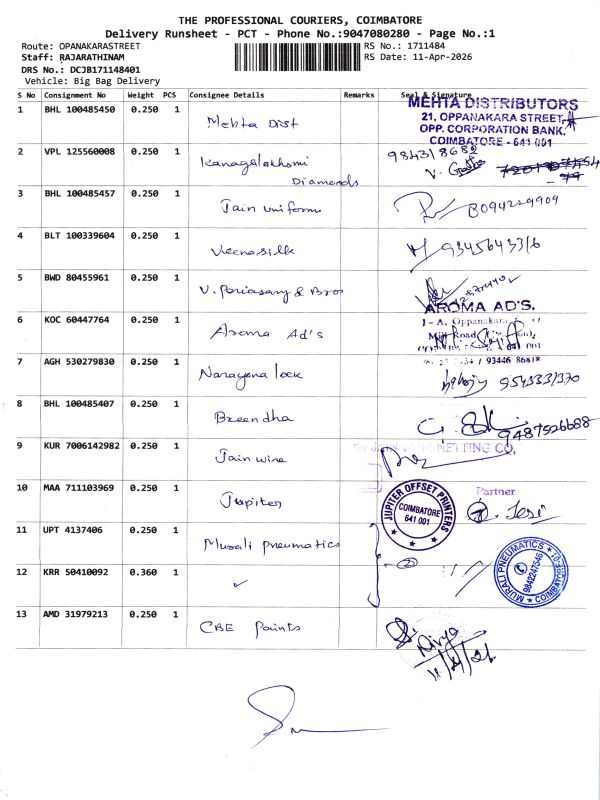 THE PROFESSIONAL COURIERS, COIMBATORE
Delivery Runsheet - PCT - Phone No.:9047080280 - Page No.:1
Route: OPANAKARASTREET
RS No.: 1711484
Staff: RAJARATHINAM
RS Date: 11-Apr-2026
DRS No.: DCJB171148401
Vehicle: Big Bag Delivery
S No Consignment No Weight PCS Consignee Details Remarks Seal & Signature
1 BHL 100485450 0.250 1 Mehta Dist
MEHTA DISTRIBUTORS
21, OPPANAKARA STREET,
OPP. CORPORATION BANK,
COIMBATORE - 641 001
2 VPL 125560008 0.250 1 Kanagalakhsmi
Diamonds
3 BHL 100485457 0.250 1 Jain uniform 8094229909
4 BLT 100339604 0.250 1 Veenasilk
5 BWD 80455961 0.250 1 V. Poriasamy & Bros
AROMA AD'S.
1-A, Oppanakara
6 KOC 60447764 0.250 1 Aroma Ad's
Road
641 001
/ 93446 86818
7 AGH 530279830 0.250 1 Narayana leek
8 BHL 100485407 0.250 1 Breendha
9487526688
9 KUR 7006142982 0.250 1 Jain wire
NETTING CO,
10 MAA 711103969 0.250 1 Jupiter
JUPITER OFFSET PRINTERS
COIMBATORE
641 001
Partner
11 UPT 4137406 0.250 1 Murali pneumatics
MURALI PNEUMATICS
9842247546
COIMBATORE
12 KRR 50410092 0.360 1 ✓
13 AMD 31979213 0.250 1 CBE Paints
Divya
11/4/26